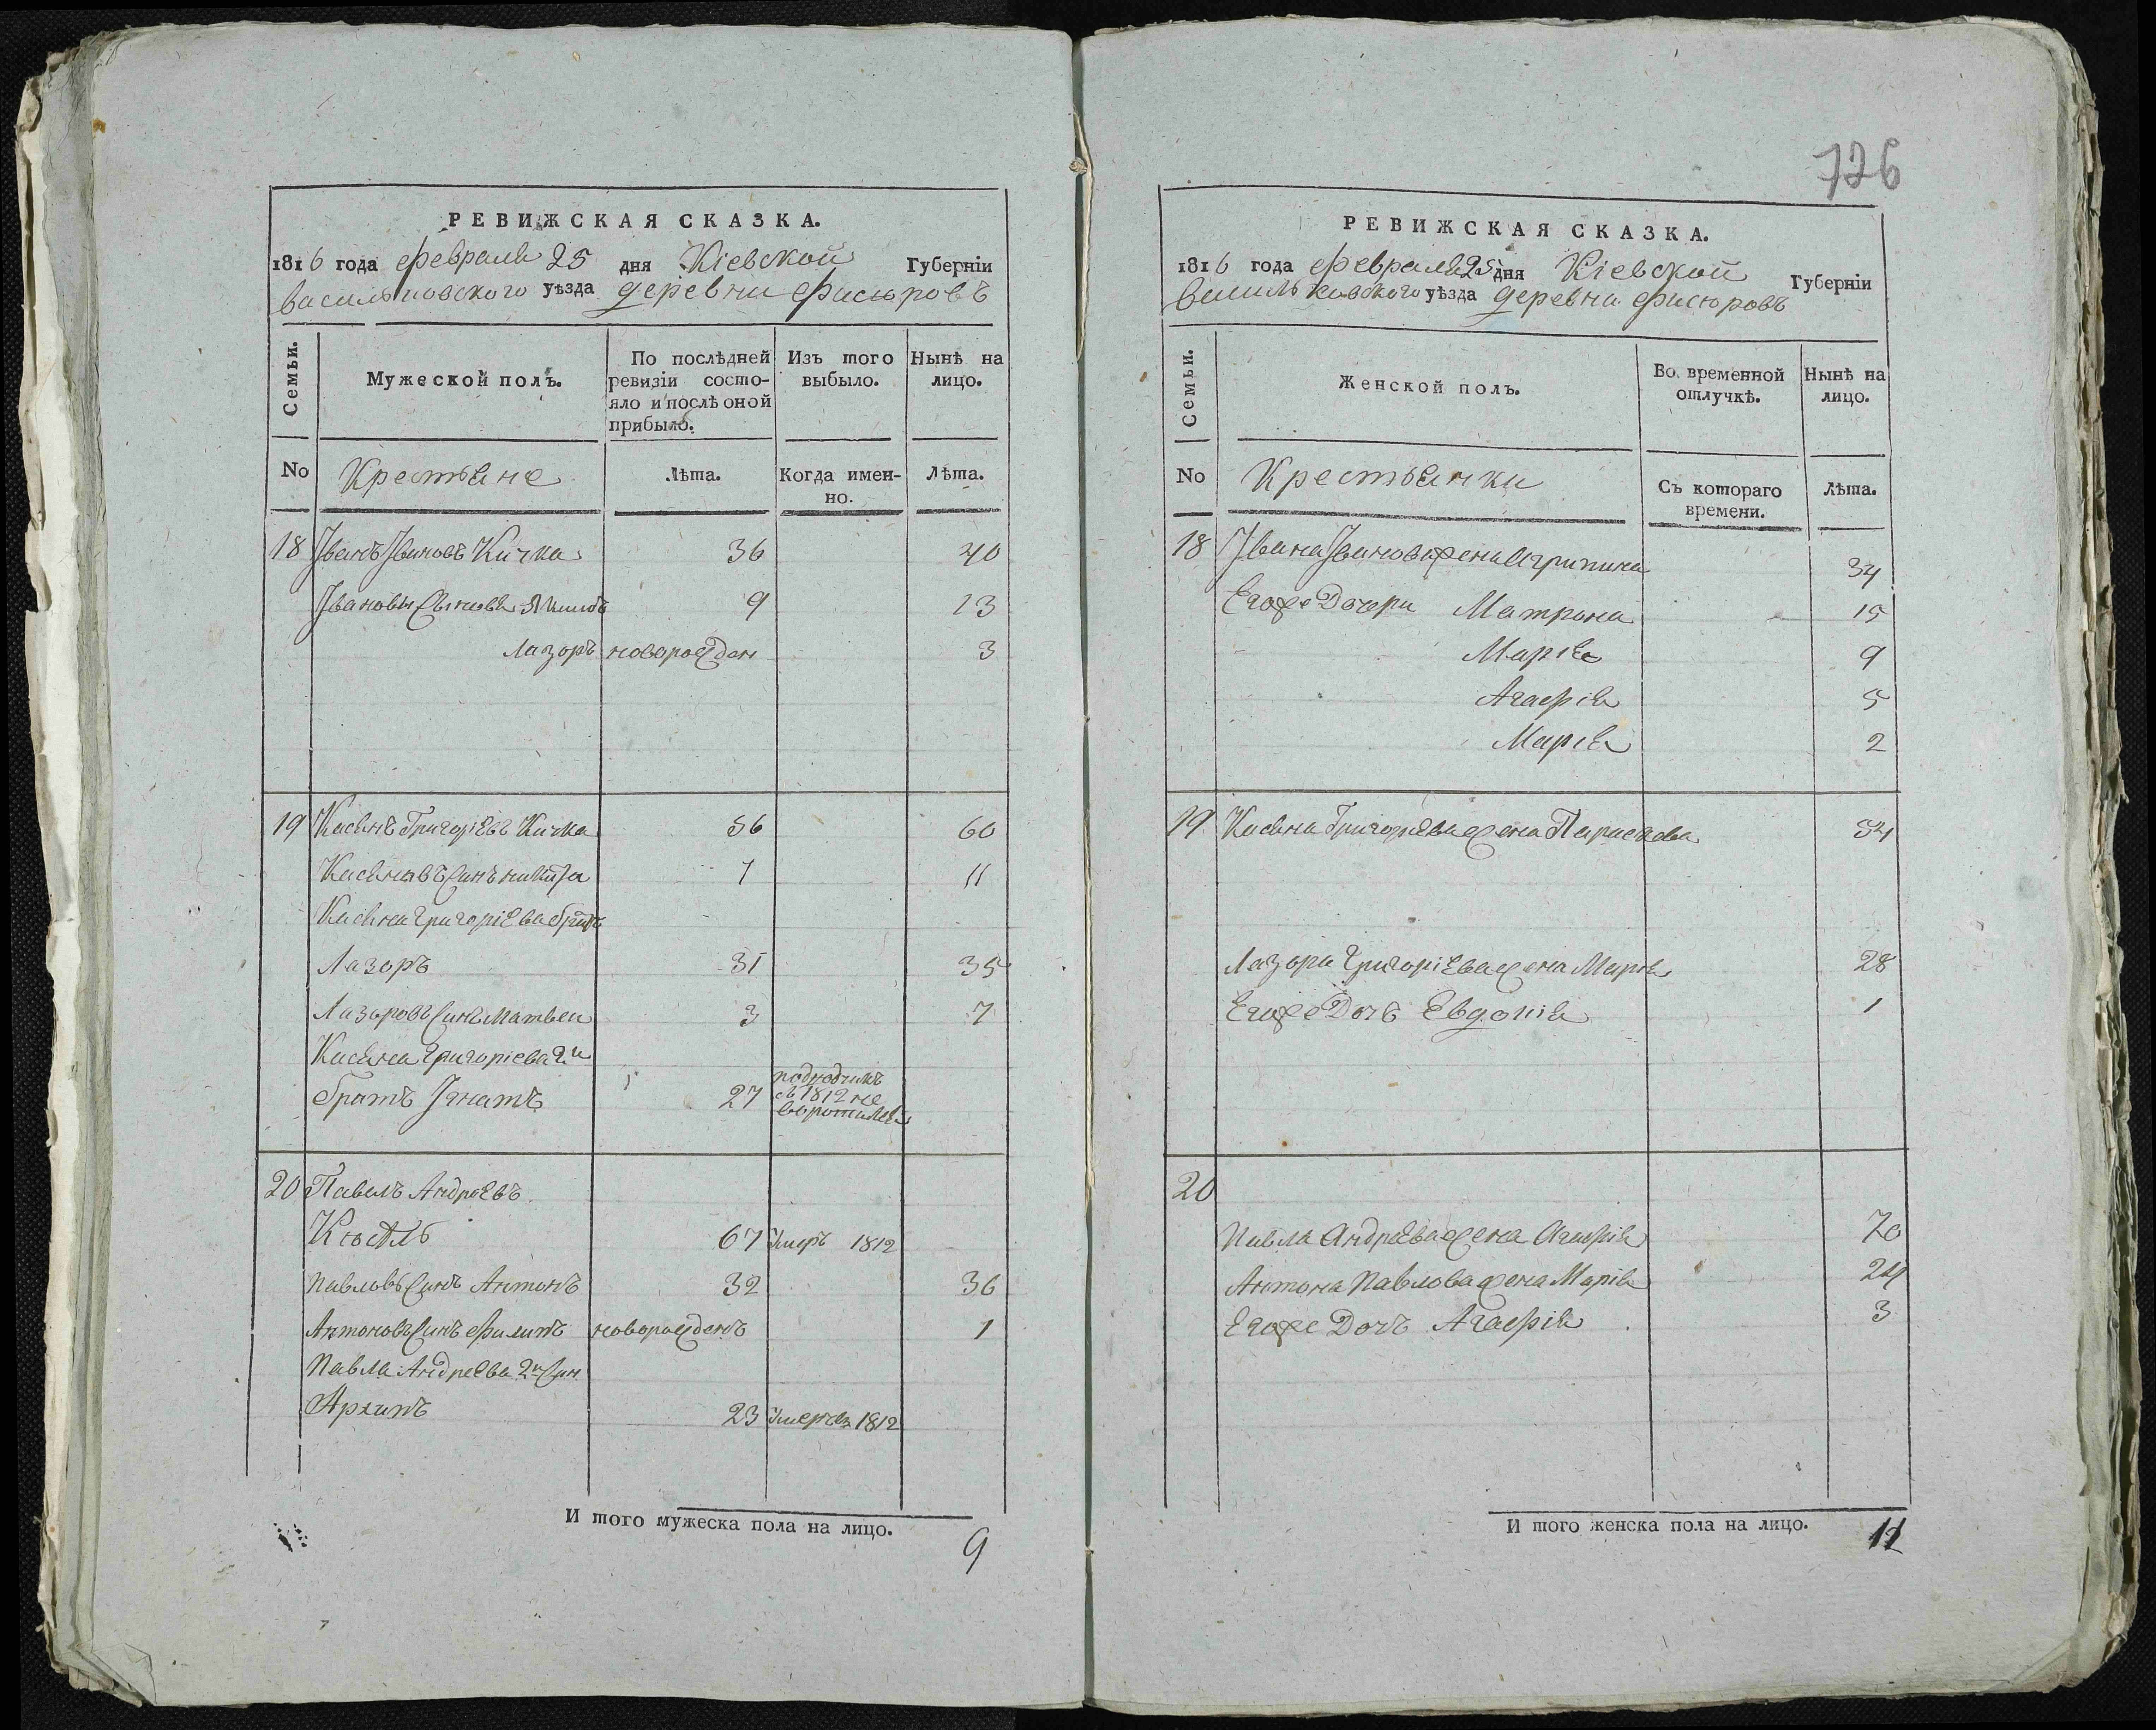 РЕВИЖСКАЯ СКАЗКА.
1816 года февраля 25 дня Кіевской Губерніи
васильковского уѣзда деревни Фисюровъ
Семьи.
Мужеской полъ.
По послѣдней ревизіи состояло и послѣ оной прибыло.
Изъ того выбыло.
Нынѣ на лицо.
No
Крестьяне
Лѣта.
Когда именно.
Лѣта.
18 Іванъ Івановъ Кичка 36 40
Івановы Сыновья 9 13
Лазоръ новорожден 3
19 Касянъ Григоріевъ Кичка 56 60
Касяновъ Синъ никита 7 11
Касяна Григоріева братъ
Лазоръ 31 35
Лазоровъ Синъ Матвеи 3 7
Касяна Григоріева 2и
братъ Ігнатъ 27 въ 1812 не воротился
20 Павелъ Андреевъ
67 Умеръ 1812
Павловъ Синъ Антонъ 32 36
Антоновъ Синъ Филипъ новорожденъ 1
Павла Андреева 2и Син
Архипъ 23 Умеръ 1812
И того мужеска пола на лицо. 9
726
РЕВИЖСКАЯ СКАЗКА.
1816 года февраля 25 дня Кіевской Губерніи
васильковского уѣзда деревни Фисюровъ
Семьи.
Женской полъ.
Во временной отлучкѣ.
Нынѣ на лицо.
No
Крестьянки
Съ котораго времени.
Лѣта.
18 Івана Іванова жена Агрипина 34
Егоже Дочери Матрона 15
Марія 9
Агафія 5
Марія 2
19 Касяна Григоріева жена Параскова 34
Лазора Григоріева жена Марія 28
Егоже Дочъ Евдокія 1
20
Павла Андреева жена Агафія 70
Антона Павлова жена Марія 24
Егоже Дочъ Агафія 3
И того женска пола на лицо. 11